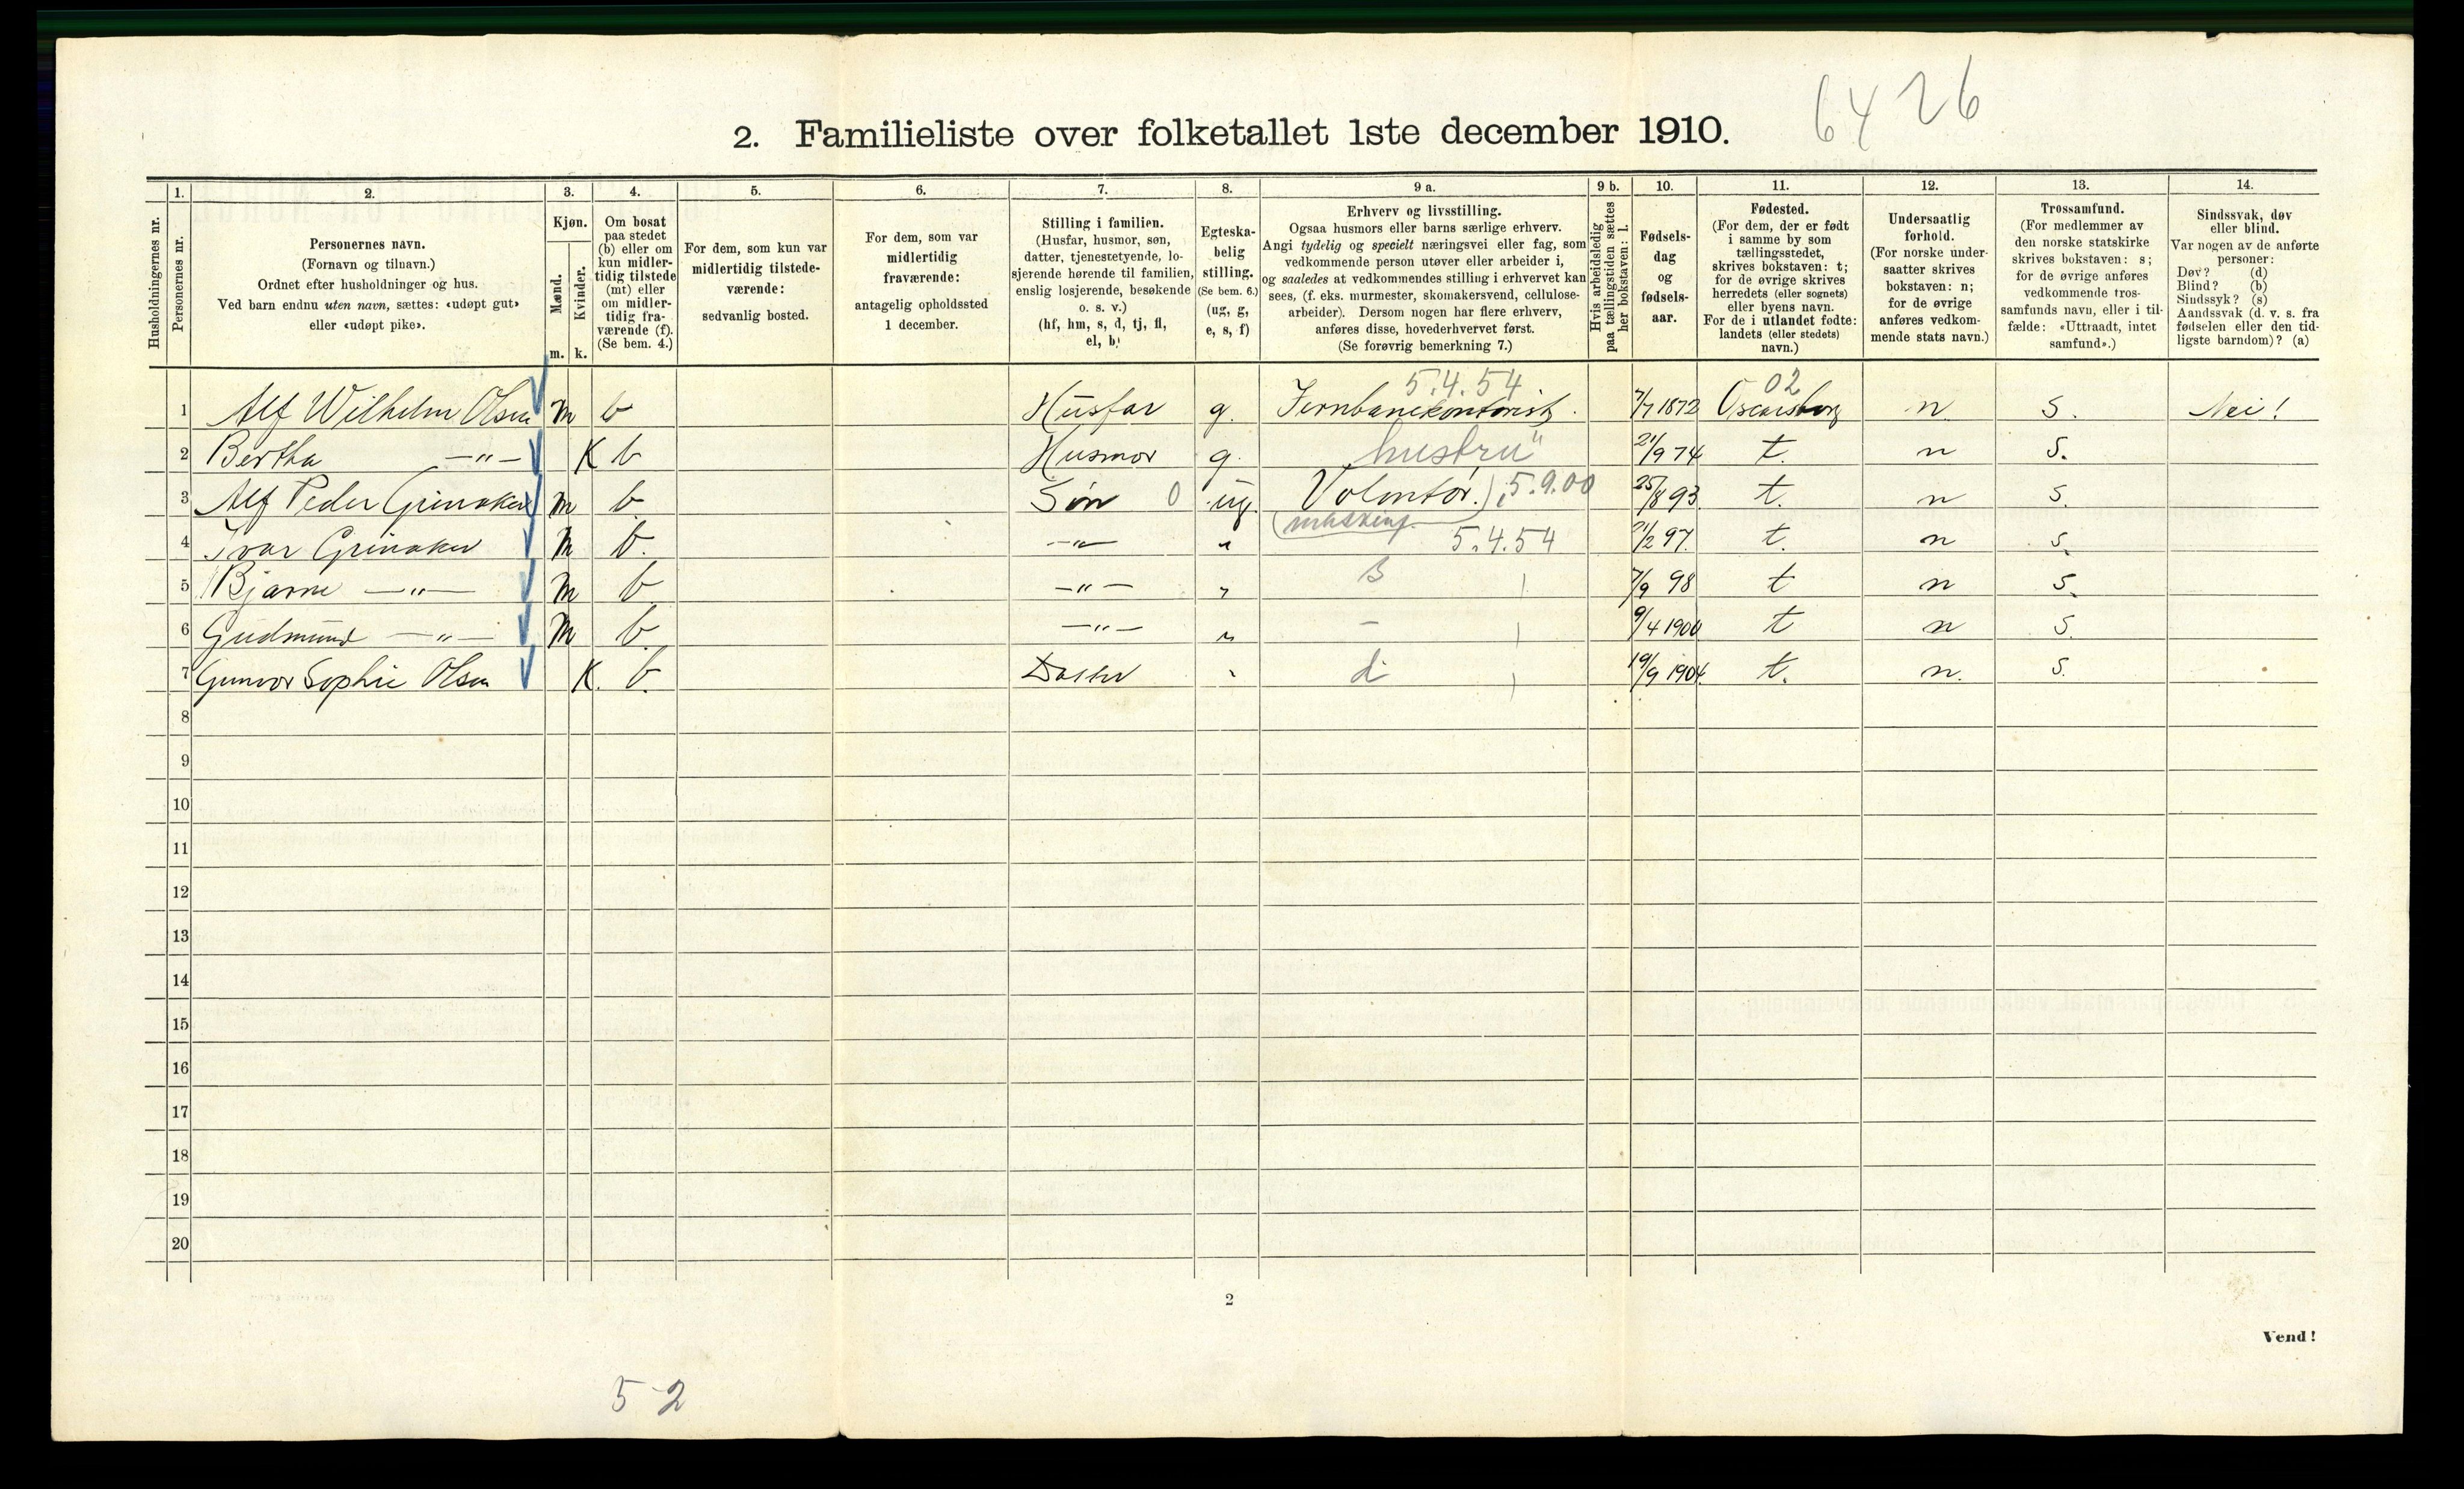 6426
2. Familieliste over folketallet 1ste december 1910.
1. 2. 3. 4. 5. 6. 7. 8. 9 a. 9 b. 10. 11. 12. 13. 14.
Husholdningernes nr.
Personernes nr.
Personernes navn.
(Fornavn og tilnavn.)
Ordnet efter husholdninger og hus.
Ved barn endnu uten navn, sættes: «udøpt gut»
eller «udøpt pike».
Kjøn.
Mænd.
Kvinder.
m. k.
Om bosat
paa stedet
(b) eller om
kun midler-
tidig tilstede
(mt) eller
om midler-
tidig fra-
værende (f).
(Se bem. 4.)
For dem, som kun var
midlertidig tilstede-
værende:
sedvanlig bosted.
For dem, som var
midlertidig
fraværende:
antagelig opholdssted
1 december.
Stilling i familien.
(Husfar, husmor, søn,
datter, tjenestetyende, lo-
sjerende hørende til familien,
enslig losjerende, besøkende
o. s. v.)
(hf, hm, s, d, tj, fl,
el, b)
Egteska-
belig
stilling.
(Se bem. 6.)
(ug, g,
e, s, f)
Erhverv og livsstilling.
Ogsaa husmors eller barns særlige erhverv.
Angi tydelig og specielt næringsvei eller fag, som
vedkommende person utøver eller arbeider i,
og saaledes at vedkommendes stilling i erhvervet kan
sees, (f. eks. murmester, skomakersvend, cellulose-
arbeider). Dersom nogen har flere erhverv,
anføres disse, hovederhvervet først.
(Se forøvrig bemerkning 7.)
Hvis arbeidsledig
paa tællingstiden sættes
her bokstaven: l.
Fødsels-
dag
og
fødsels-
aar.
Fødested.
(For dem, der er født
i samme by som
tællingsstedet,
skrives bokstaven: t;
for de øvrige skrives
herredets (eller sognets)
eller byens navn.
For de i utlandet fødte:
landets (eller stedets)
navn.)
Undersaatlig
forhold.
(For norske under-
saatter skrives
bokstaven: n;
for de øvrige
anføres vedkom-
mende stats navn.)
Trossamfund.
(For medlemmer av
den norske statskirke
skrives bokstaven: s;
for de øvrige anføres
vedkommende tros-
samfunds navn, eller i til-
fælde: «Uttraadt, intet
samfund».)
Sindssvak, døv
eller blind.
Var nogen av de anførte
personer:
Døv? (d)
Blind? (b)
Sindssyk? (s)
Aandssvak (d. v. s. fra
fødselen eller den tid-
ligste barndom)? (a)
5.4.54 02
1 Alf Wilhelm Olsen m b Husfar g. Jernbanekontorist. 7/7 1872 Oscarsborg n s. Nei!
2 Bertha —"— K b Husmor g. hustru" 21/9 74 t. n s.
3 Alf Peder Grinaker m b. Søn 0 ug. Volontør.) 5.9.00 25/8 93. t. n s.
4 Ivar Grinaker m b. —"— " 5.4.54 21/2 97. t. n s.
5 Bjarne —"— m b —"— " s 7/9 98 t n s.
6 Gudmund —"— m b. —"— " – 9/4 1900 t n s.
7 Gunvor Sophie Olsen K. b. Datter " d 19/9 1904. t. n. s.
8
9
10
11
12
13
14
15
16
17
18
19
20
2
Vend!
52